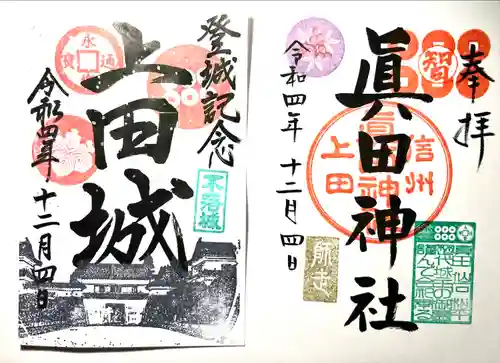 奉拝
眞田神社
信州
上田
眞田神社
智
令和四年 十二月四日
師走
登城記念
上田城
不落城
永楽通寳
令和四年 十二月四日